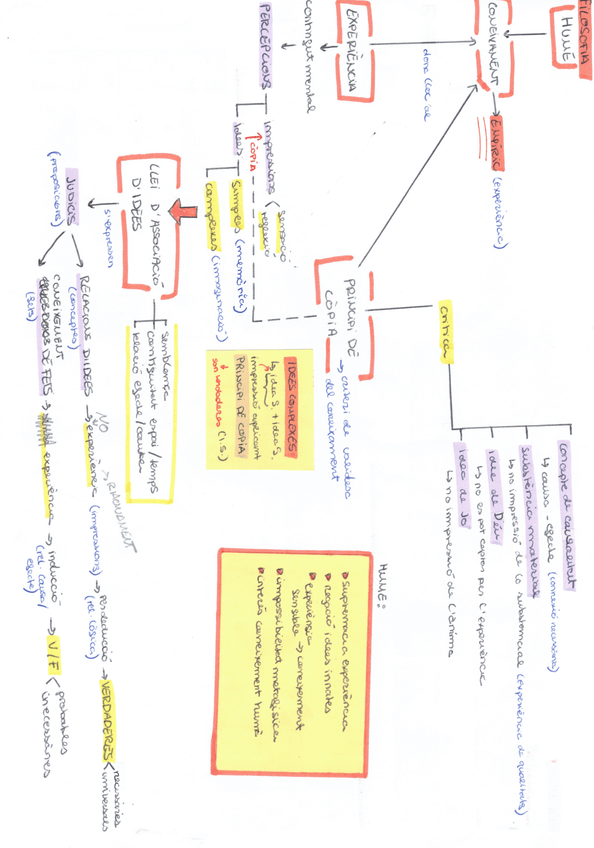 FILOSOFIA
HUME
CONEIXAMENT
EMPÍRIC (experiència)
dona lloc al
EXPERIÈNCIA
contingut mental
PERCEPCIONS
impressions
sensació
reflexió
CÒPIA
idees
simples (memòria)
complexes (imaginació)
LLEI D'ASSOCIACIÓ
D'IDEES
semblança
contigüitat espai/temps
relació efecte/causa
s'expressen
JUDICIS
(proposicions)
RELACIONS D'IDEES
(conceptes)
NO
experiència (impressions)
RAONAMENT
per deducció
(rel. lògica)
VERDADERES
necessàries
universals
CONEIXEMENT
DE FETS
(fets)
experiència
inducció
(rel. causa/
efecte)
V/F
probables
innecessàries
PRINCIPI DE
CÒPIA
criteri de validesa
del coneixement
IDEES COMPLEXES
idea S + idea S,
impressió aplicant
PRINCIPI DE CÒPIA
són verdaderes (I.S.)
crítica
concepte de causalitat
causa - efecte (connexió necessària)
substància material
no impressió de la substancial (experiència de qualitats)
idea de Déu
no es pot captar per l'experiència
idea de Jo
no impressió de l'ànima
HUME:
supremacia experiència
negació idees innates
experiència
sensible → coneixement
impossibilitat metafísica
límits coneixement humà